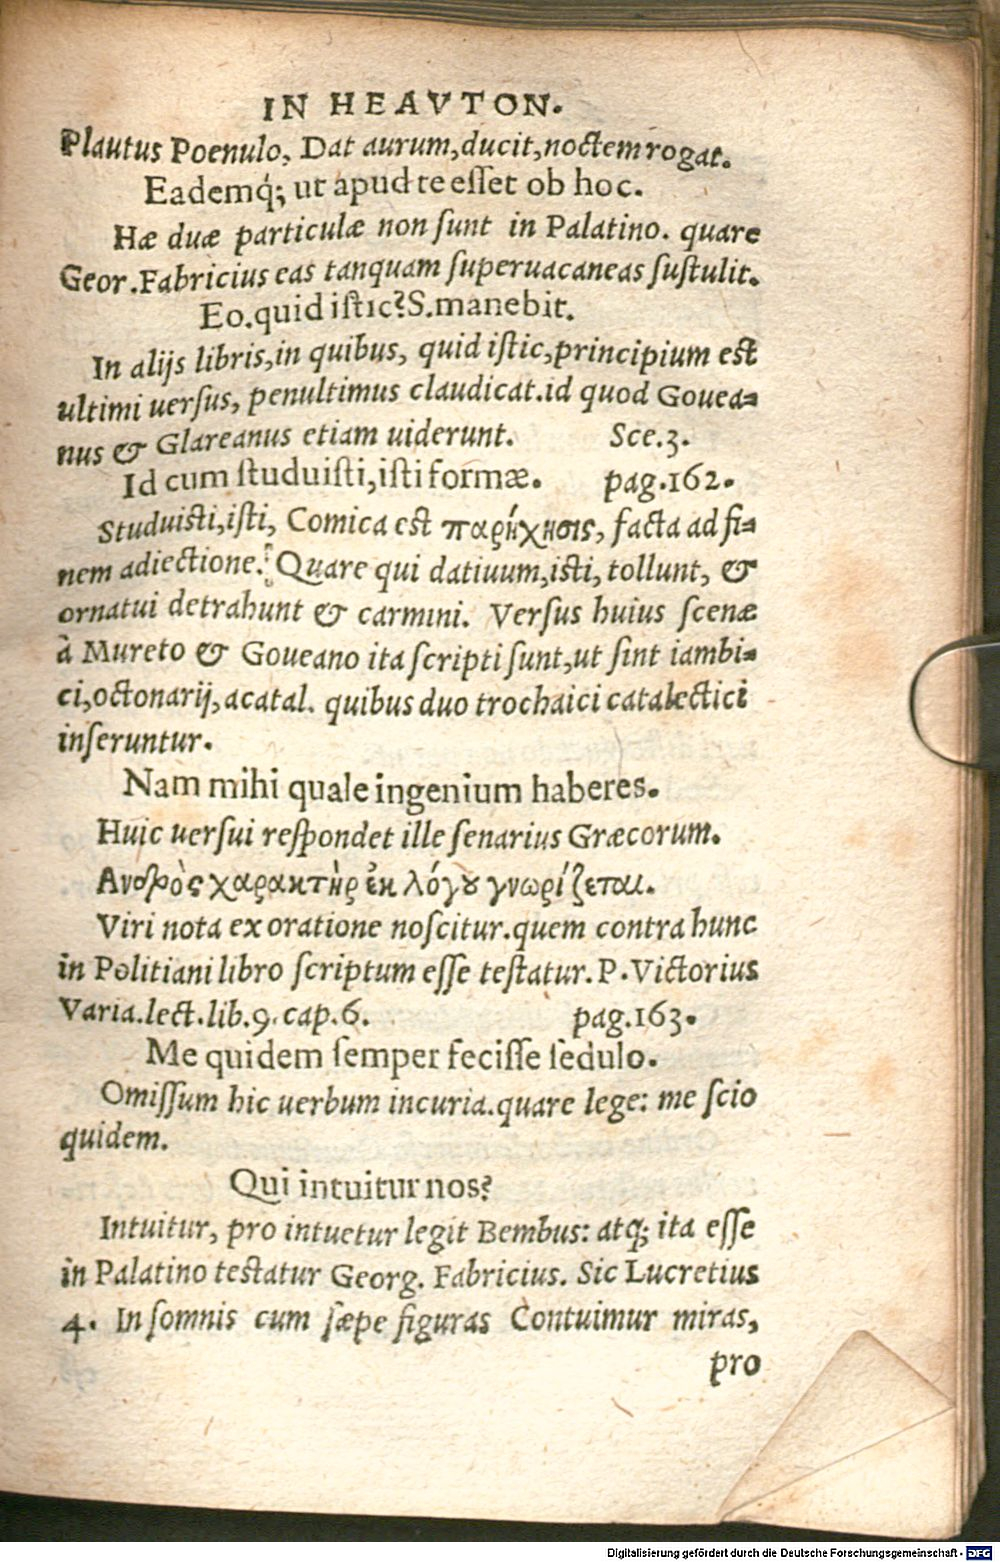 IN HEAVTON.
Plautus Poenulo, Dat aurum, ducit, noctem rogat.
Eademq́; ut apud te esset ob hoc.
Hæ duæ particulæ non sunt in Palatino. quare
Geor. Fabricius eas tanquam superuacaneas sustulit.
Eo. quid istic? S. manebit.
In alijs libris, in quibus, quid istic, principium est
ultimi uersus, penultimus claudicat. id quod Gouea-
nus & Glareanus etiam uiderunt. Sce. 3.
Id cum studuisti, isti formæ. pag. 162.
Studuisti, isti, Comica est παρήχησις, facta ad fi-
nem adiectione. Quare qui datiuum, isti, tollunt, &
ornatui detrahunt & carmini. Versus huius scenæ
à Mureto & Goueano ita scripti sunt, ut sint iambi-
ci, octonarij, acatal. quibus duo trochaici catalectici
inseruntur.
Nam mihi quale ingenium haberes.
Huic uersui respondet ille senarius Græcorum.
Ανδρὸς χαρακτὴρ ἐκ λόγου γνωρίζεται.
Viri nota ex oratione noscitur. quem contra hunc
in Politiani libro scriptum esse testatur. P. Victorius
Varia. lect. lib. 9. cap. 6. pag. 163.
Me quidem semper fecisse sedulo.
Omissum hic uerbum incuria. quare lege: me scio
quidem.
Qui intuitur nos?
Intuitur, pro intuetur legit Bembus: atq; ita esse
in Palatino testatur Georg. Fabricius. Sic Lucretius
4. In somnis cum sæpe figuras Contuimur miras,
pro
Digitalisierung gefördert durch die Deutsche Forschungsgemeinschaft - DFG